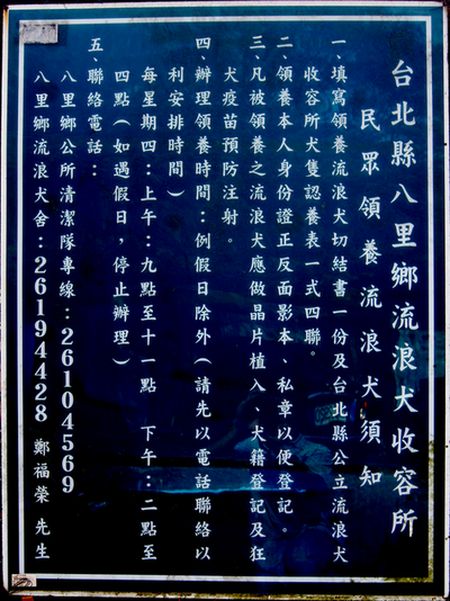 台北縣八里鄉流浪犬收容所
民眾領養流浪犬須知
一、填寫領養流浪犬切結書一份及台北縣公立流浪犬
收容所犬隻認養表一式四聯。
二、領養本人身份證正反面影本、私章以便登記。
三、凡被領養之流浪犬應做晶片植入、犬籍登記及狂
犬疫苗預防注射。
四、辦理領養時間：例假日除外（請先以電話聯絡以
利安排時間）
每星期四：上午：九點至十一點　下午：二點至
四點（如遇假日，停止辦理）
五、聯絡電話：
八里鄉公所清潔隊專線：26104569
八里鄉流浪犬舍：26194428 鄭福榮 先生